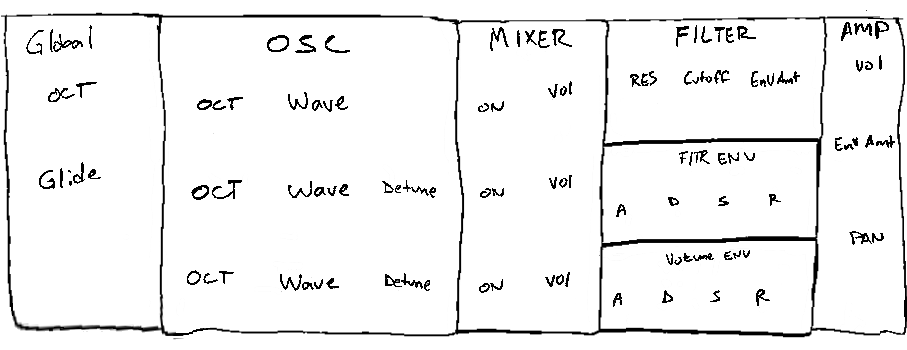 Global
OCT
Glide
OSC
OCT Wave
OCT Wave Detune
OCT Wave Detune
MIXER
ON Vol
ON Vol
ON Vol
FILTER
RES Cutoff EnvAmt
FITR ENV
A D S R
Volume ENV
A D S R
AMP
Vol
Env Amt
PAN